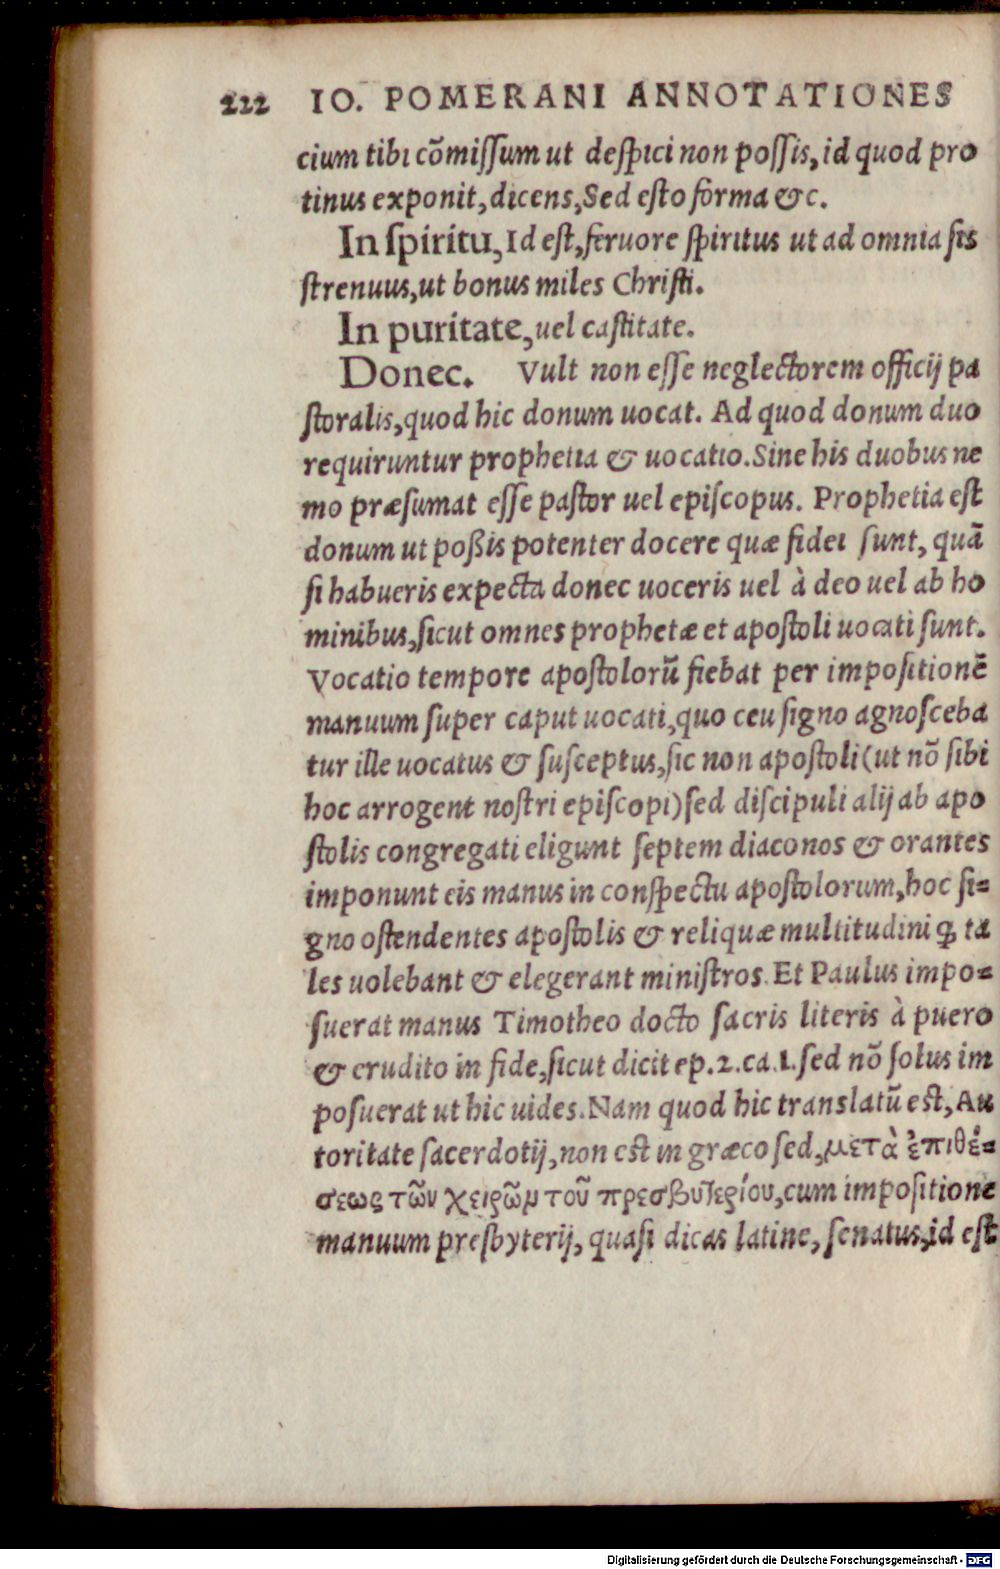 222 IO. POMERANI ANNOTATIONES
cium tibi cõmiſſum ut deſpici non poſſis, id quod pro
tinus exponit, dicens, Sed eſto forma &c.
In ſpiritu, Id eſt, feruore ſpiritus ut ad omnia ſis
ſtrenuus, ut bonus miles Chriſti.
In puritate, uel caſtitate.
Donec. Vult non eſſe neglectorem officij pa
ſtoralis, quod hic donum uocat. Ad quod donum duo
requiruntur prophetia & uocatio. Sine his duobus ne
mo præſumat eſſe paſtor uel epiſcopus. Prophetia eſt
donum ut poßis potenter docere quæ fidei ſunt, quã
ſi habueris expecta donec uoceris uel à deo uel ab ho
minibus, ſicut omnes prophetæ et apoſtoli uocati ſunt.
Vocatio tempore apoſtolorũ fiebat per impoſitionẽ
manuum ſuper caput uocati, quo ceu ſigno agnoſceba
tur ille uocatus & ſuſceptus, ſic non apoſtoli (ut nõ ſibi
hoc arrogent noſtri epiſcopi) ſed diſcipuli alij ab apo
ſtolis congregati eligunt ſeptem diaconos & orantes
imponunt eis manus in conſpectu apoſtolorum, hoc ſi=
gno oſtendentes apoſtolis & reliquæ multitudini ꝙ ta
les uolebant & elegerant miniſtros. Et Paulus impo=
ſuerat manus Timotheo docto ſacris literis à puero
& erudito in fide, ſicut dicit ep. 2. ca. 1. ſed nõ ſolus im
poſuerat ut hic uides. Nam quod hic translatũ eſt, Au
toritate ſacerdotij, non eſt in græco ſed, μετὰ ἐπιθέ=
σεως τῶν χειρῶν τοῦ πρεσβυτερίου, cum impoſitione
manuum preſbyterij, quaſi dicas latine, ſenatus, id eſt
Digitalisierung gefördert durch die Deutsche Forschungsgemeinschaft - DFG